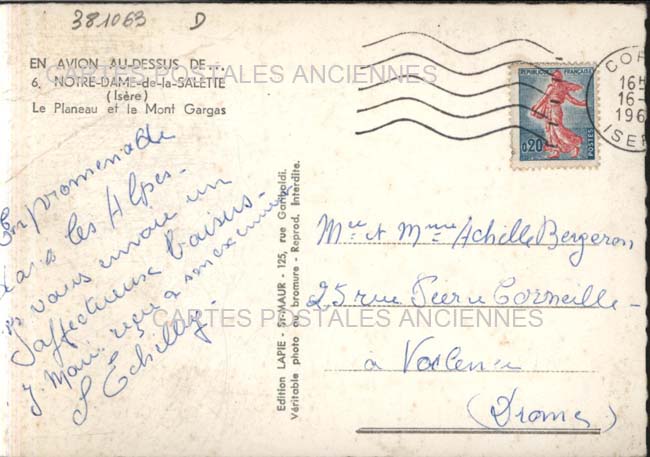 381063 D
EN AVION AU-DESSUS DE...
6. NOTRE-DAME-de-la-SALETTE
(Isère)
Le Planeau et le Mont Gargas
CARTES POSTALES ANCIENNES
En promenade
dans les Alpes.
vous envoie un
affectueux baisers.
J. Marie reçu à son examen
Edition LAPIE - St-MAUR - 125, rue Garibaldi.
Véritable photo au bromure - Reprod. Interdite.
REPUBLIQUE FRANÇAISE
0,20
POSTES
COR
16
16-
196
ISER
Mr et Mme Achille Bergeron
25 rue Pierre Corneille
CARTES POSTALES ANCIENNES
à Valence
(Drome)